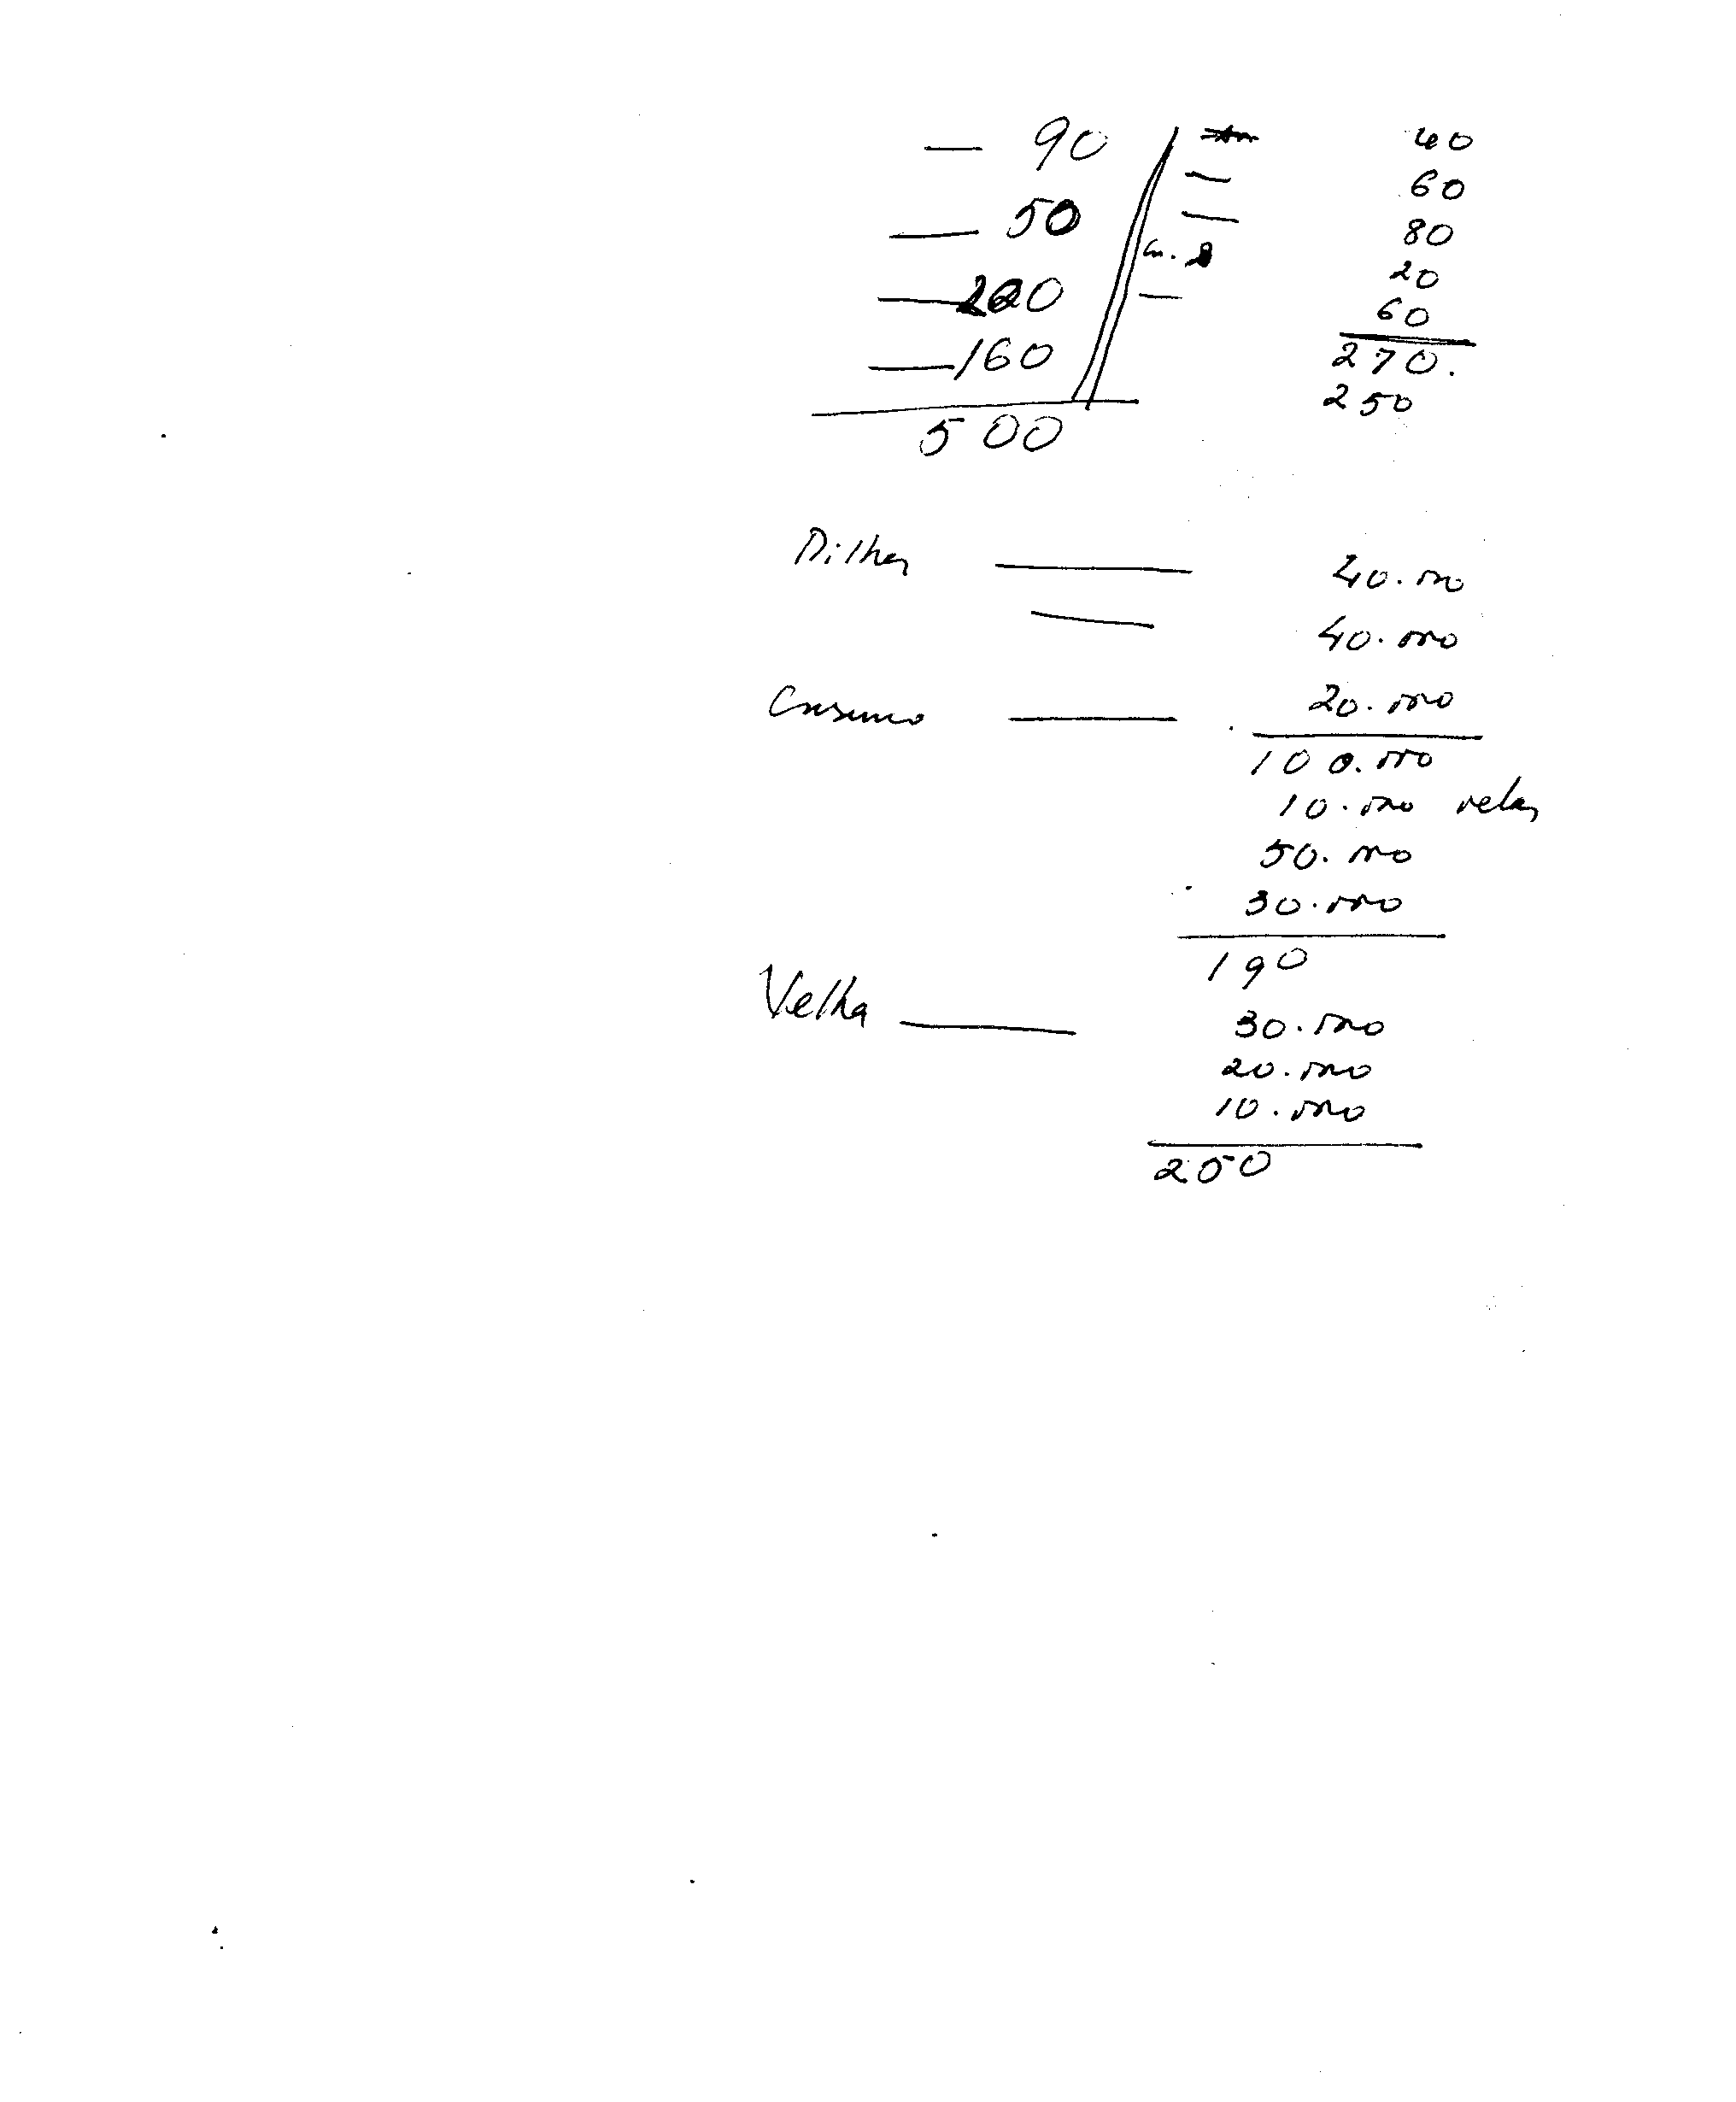 — 90
— 50
— 200
— 160
500
40
60
80
20
60
270.
250
— 40.000
— 40.000
Consumo — 20.000
100.000
10.000
50.000
30.000
190
Velha — 30.000
20.000
10.000
250